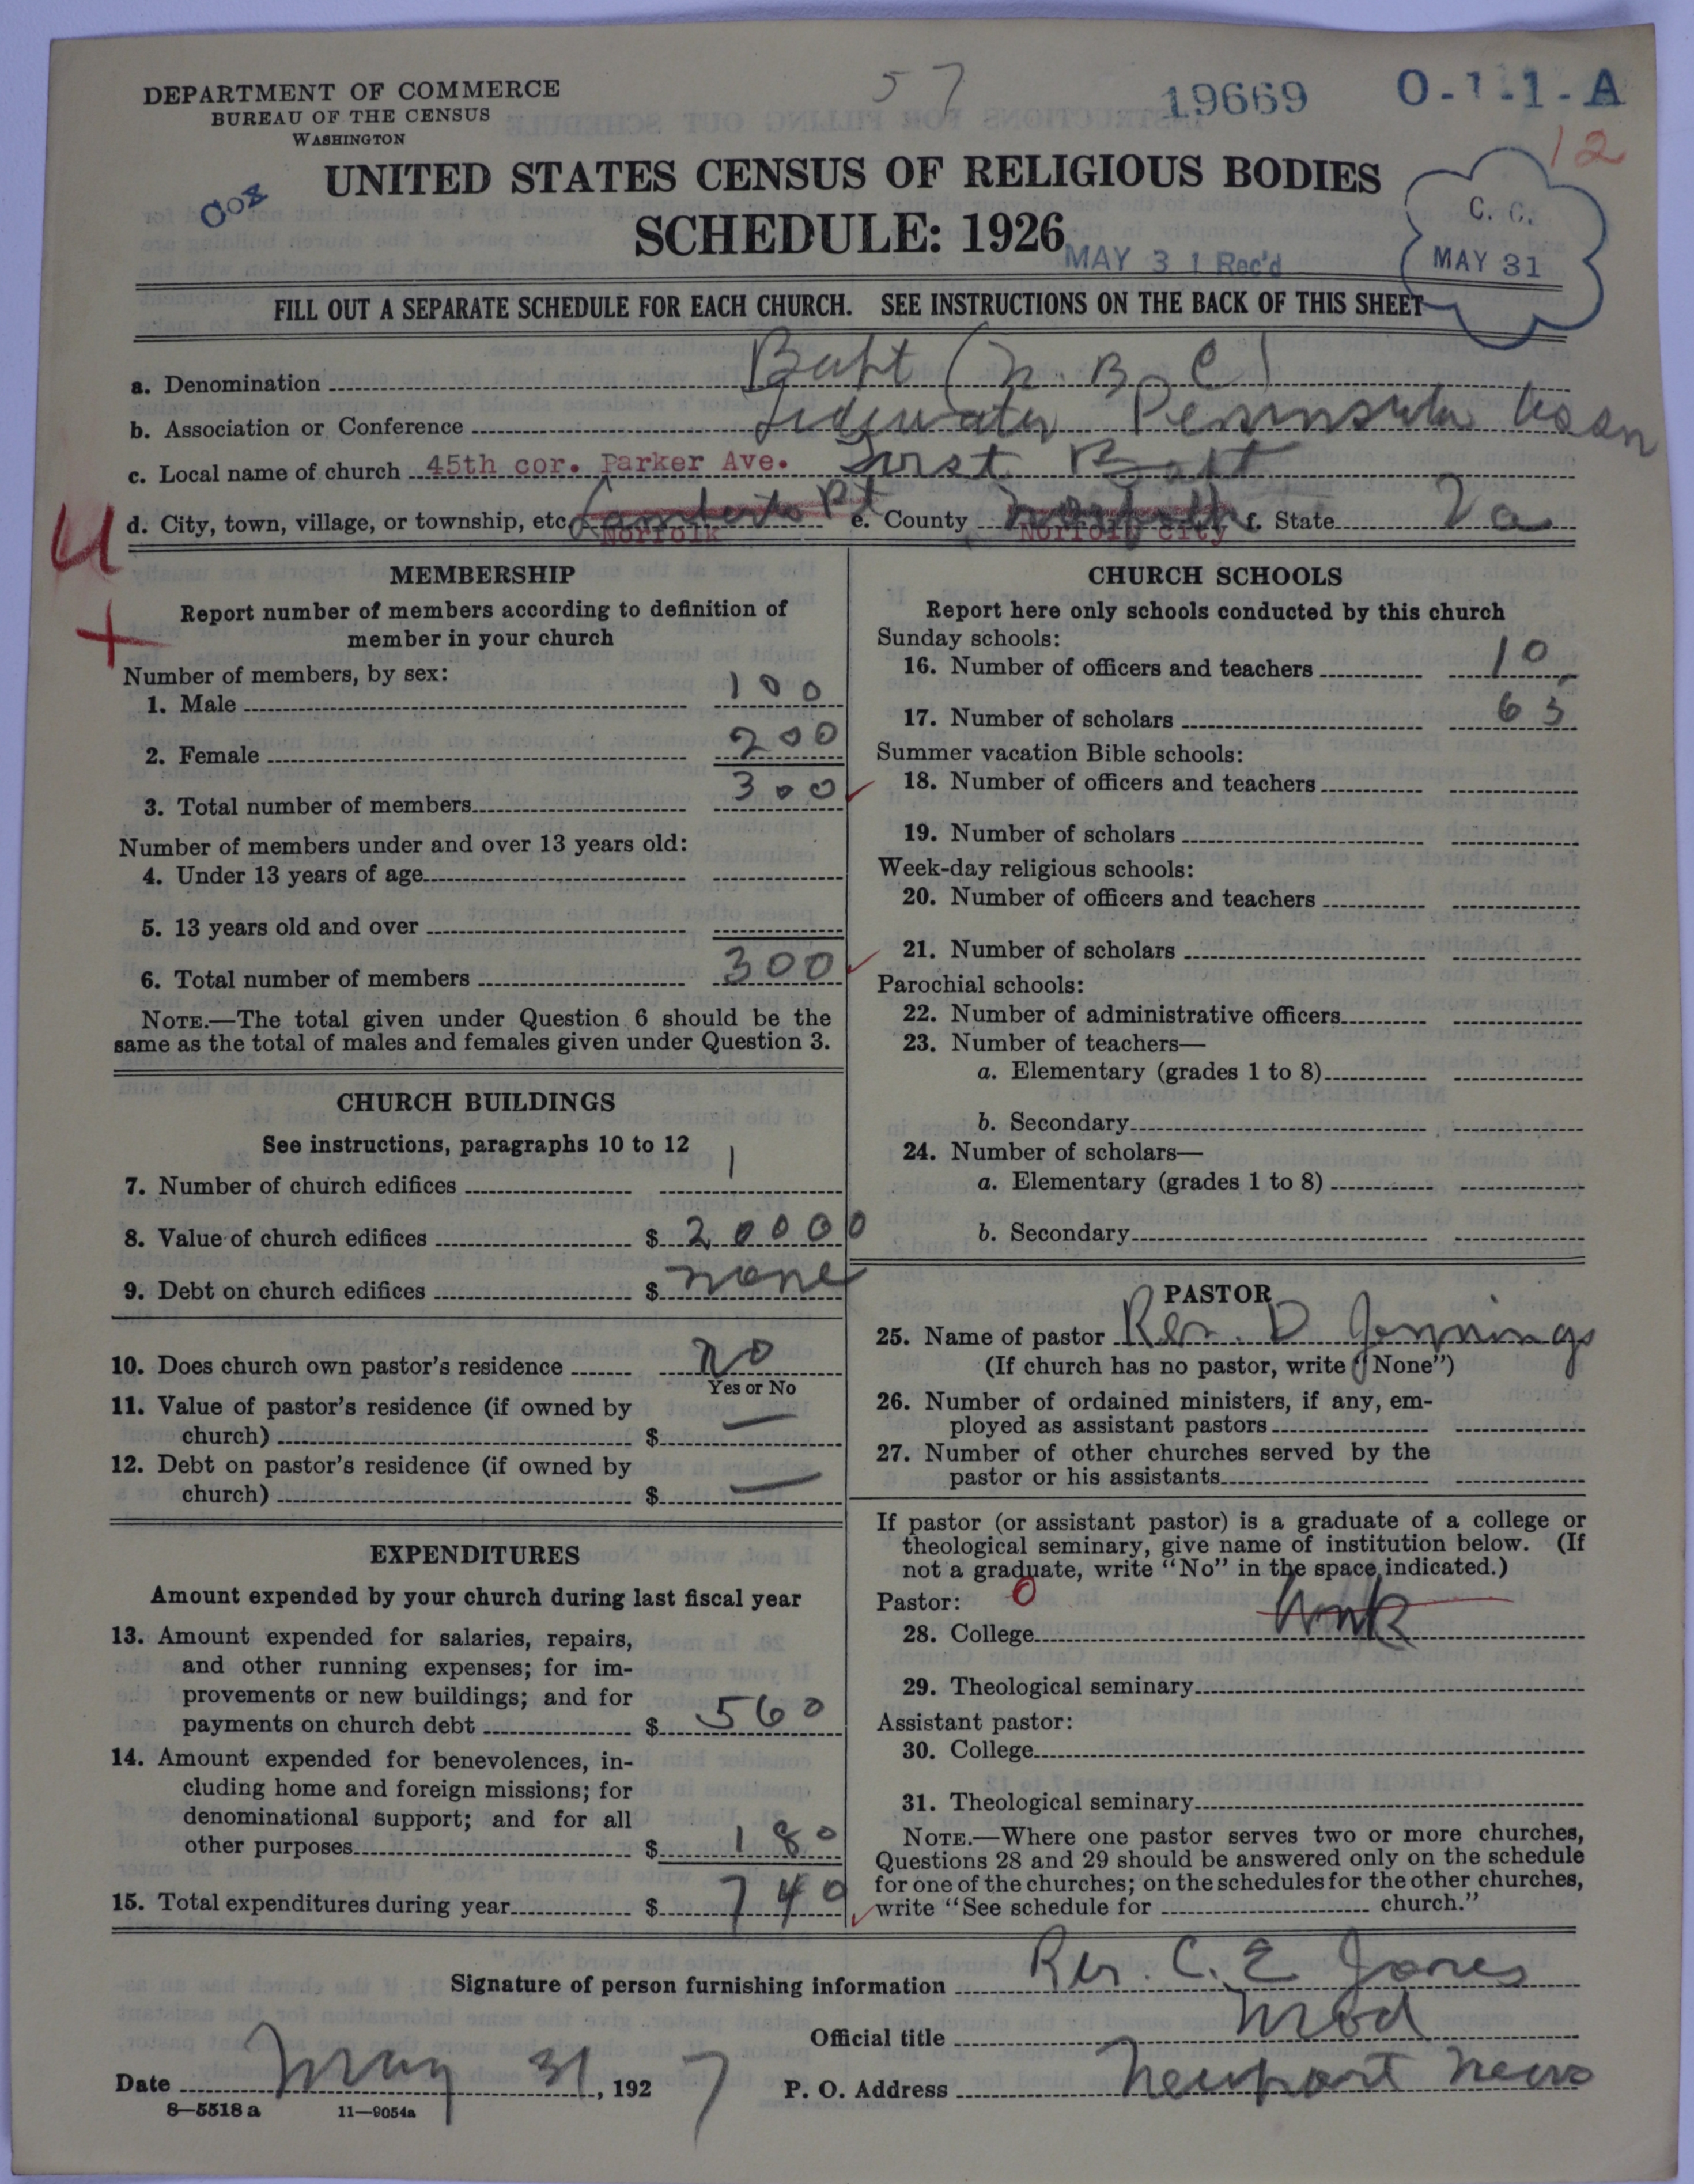 57
19669
O-1-1-A
12
DEPARTMENT OF COMMERCE
BUREAU OF THE CENSUS
WASHINGTON
UNITED STATES CENSUS OF RELIGIOUS BODIES
SCHEDULE: 1926
MAY 31 Rec'd
C. C.
MAY 31
FILL OUT A SEPARATE SCHEDULE FOR EACH CHURCH. SEE INSTRUCTIONS ON THE BACK OF THIS SHEET
a. Denomination Bapt (N. B. C)
b. Association or Conference Tidewater Peninsula Assn
c. Local name of church 45th cor. Parker Ave. First Bapt
d. City, town, village, or township, etc. Lamberts Pt Norfolk e. County Norfolk Norfolk City f. State Va
U
+
MEMBERSHIP
Report number of members according to definition of
member in your church
Number of members, by sex:
1. Male 100
2. Female 200
3. Total number of members 300
Number of members under and over 13 years old:
4. Under 13 years of age
5. 13 years old and over
6. Total number of members 300
NOTE.—The total given under Question 6 should be the
same as the total of males and females given under Question 3.
CHURCH BUILDINGS
See instructions, paragraphs 10 to 12
7. Number of church edifices 1
8. Value of church edifices $ 20000
9. Debt on church edifices $ none
10. Does church own pastor's residence no
Yes or No
11. Value of pastor's residence (if owned by
church) $ —
12. Debt on pastor's residence (if owned by
church) $ —
EXPENDITURES
Amount expended by your church during last fiscal year
13. Amount expended for salaries, repairs,
and other running expenses; for im-
provements or new buildings; and for
payments on church debt $ 560
14. Amount expended for benevolences, in-
cluding home and foreign missions; for
denominational support; and for all
other purposes $ 180
15. Total expenditures during year $ 740
CHURCH SCHOOLS
Report here only schools conducted by this church
Sunday schools:
16. Number of officers and teachers 10
17. Number of scholars 65
Summer vacation Bible schools:
18. Number of officers and teachers
19. Number of scholars
Week-day religious schools:
20. Number of officers and teachers
21. Number of scholars
Parochial schools:
22. Number of administrative officers
23. Number of teachers—
a. Elementary (grades 1 to 8)
b. Secondary
24. Number of scholars—
a. Elementary (grades 1 to 8)
b. Secondary
PASTOR
25. Name of pastor Rev. D Jennings
(If church has no pastor, write "None")
26. Number of ordained ministers, if any, em-
ployed as assistant pastors
27. Number of other churches served by the
pastor or his assistants
If pastor (or assistant pastor) is a graduate of a college or
theological seminary, give name of institution below. (If
not a graduate, write "No" in the space indicated.)
Pastor: 0
28. College Unk
29. Theological seminary
Assistant pastor:
30. College
31. Theological seminary
NOTE.—Where one pastor serves two or more churches,
Questions 28 and 29 should be answered only on the schedule
for one of the churches; on the schedules for the other churches,
write "See schedule for church."
Signature of person furnishing information Rev. C. E Jones
Official title Mod
Date May 31, 1927 P. O. Address Newport News
8—5518 a 11—9054a